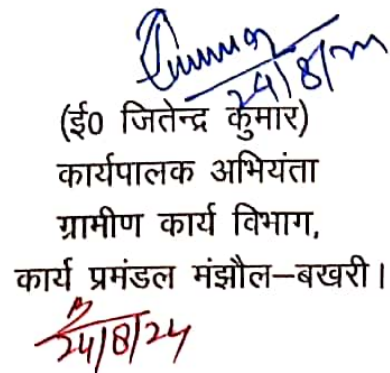 24/8/24
(ई0 जितेन्द्र कुमार)
कार्यपालक अभियंता
ग्रामीण कार्य विभाग,
कार्य प्रमंडल मंझौल–बखरी।
24/8/24